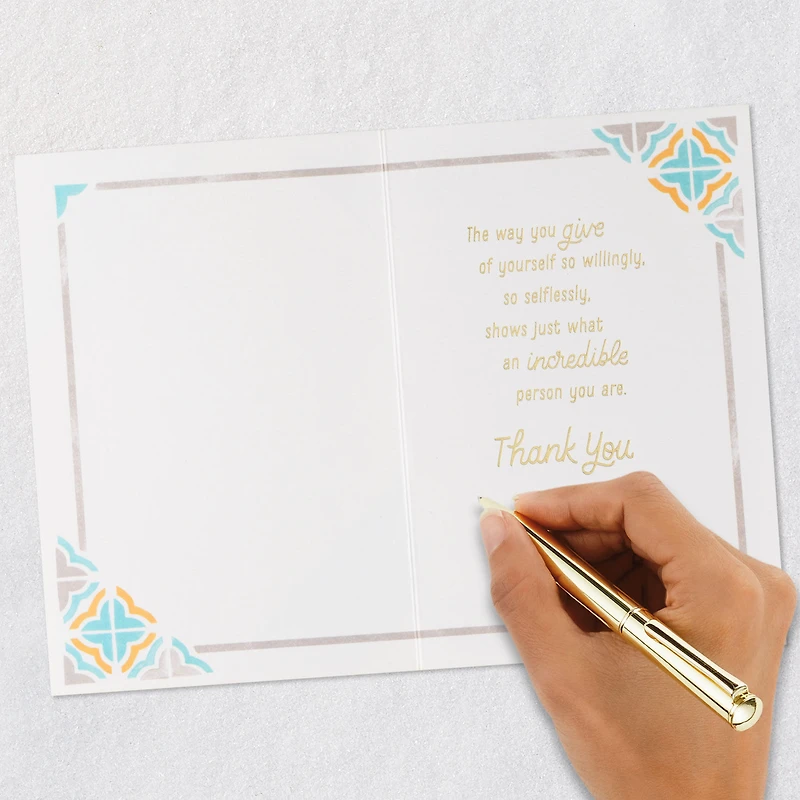 The way you give
of yourself so willingly,
so selflessly,
shows just what
an incredible
person you are.
Thank You